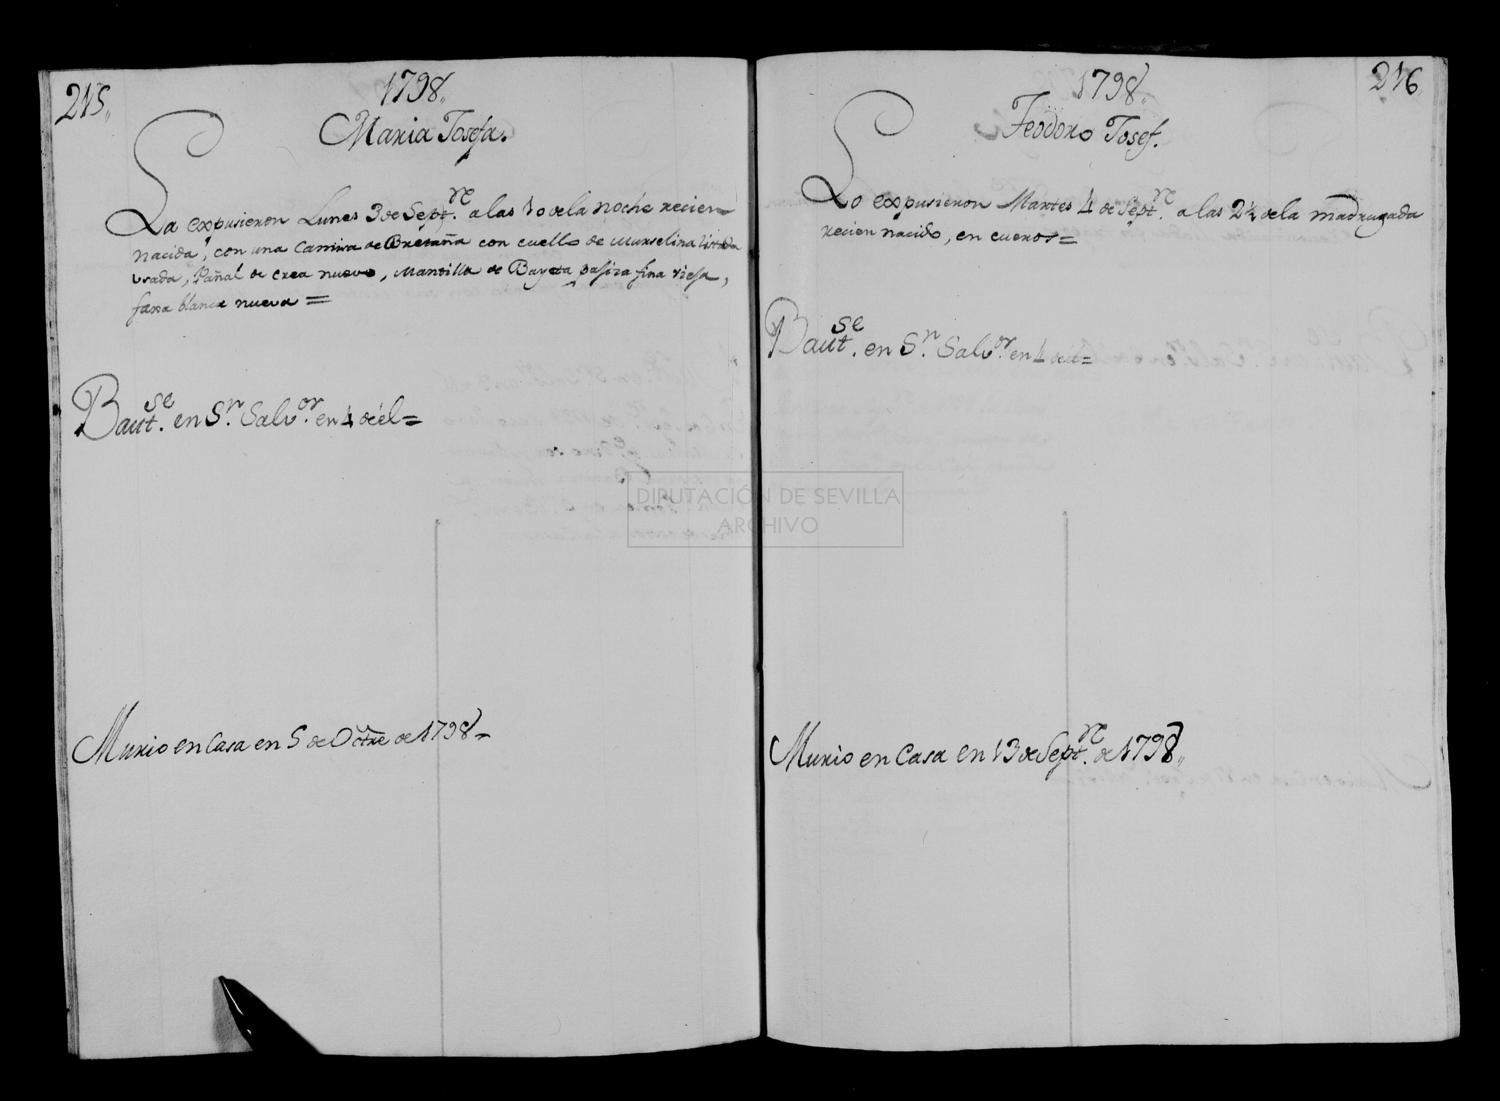 215,,
1798,,
Maria Josefa.
La expusieron Lunes 3 de Sept.re a las 10 de la noche recien
nacida, con una Camisa de Bretaña con cuello de Murselina listada
usada, Pañal de crea nuevo, Mantilla de Bayeta fina viefa,
faxa blanca nueva =
Baut.se en Sn. Salv.or en 4 de él =
Murio en Casa en 5 de Octre de 1798 =
216
1798,,
Teodoro Josef.
Lo expusieron Martes 4 de Sept.re a las 2½ de la madrugada
recien nacido, en cueros =
Baut.se en Sn. Salv.or en 4 de él =
Murio en Casa en 13 de Sept.re de 1798,,
DIPUTACIÓN DE SEVILLA
ARCHIVO